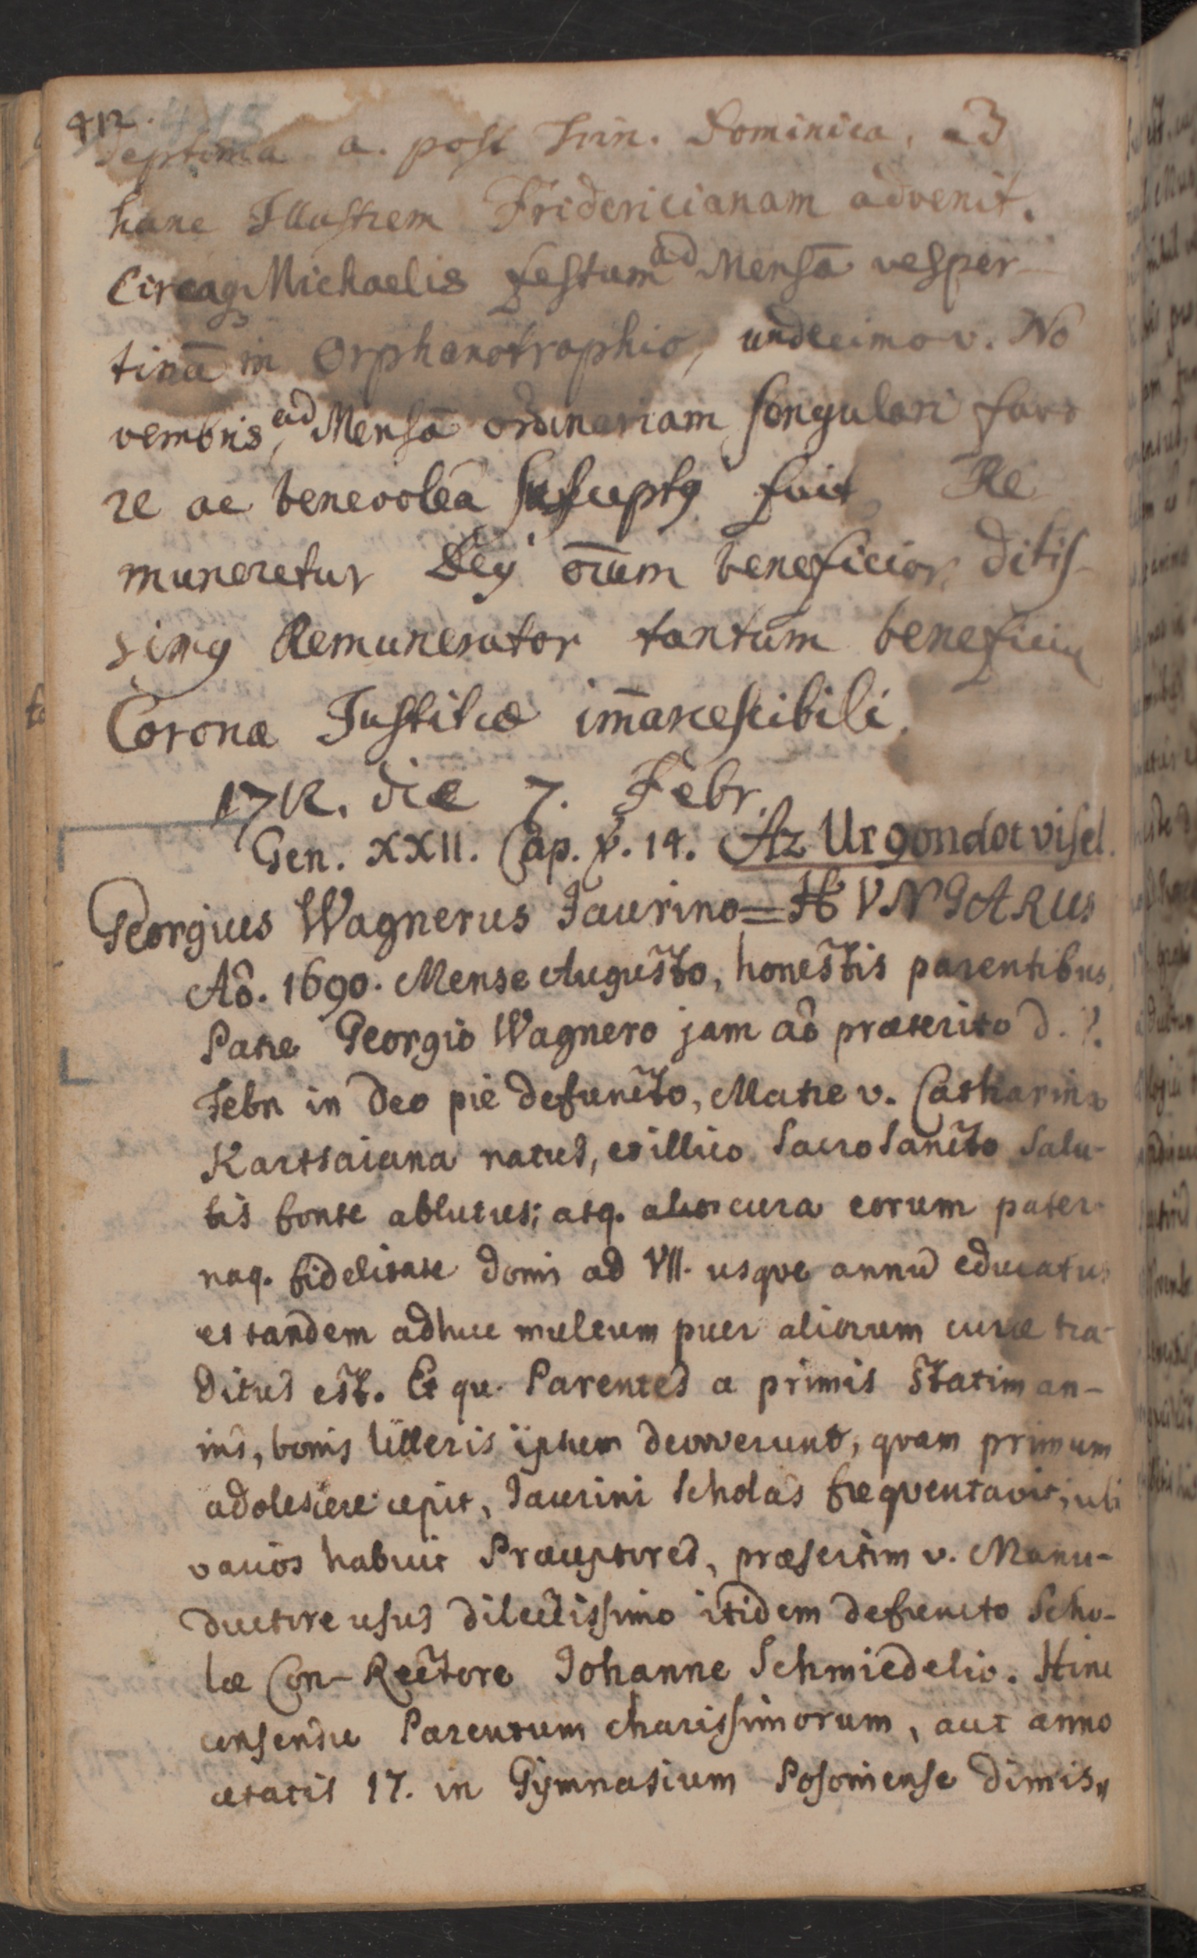 412. 415
Septima a. post Trin. Dominica, ad
hanc Illustrem Fridericianam advenit.
Circaq Michaelis festum ad Mensā vesper-
tinā in Orphanotrophio, undecimo v. No
vembris, ad Mensā ordinariam singulari favo
re ac benevolēa susceptq fuit Re
muneretur Deq oīum beneficior ditis-
simq Remunerator tantum beneficiu
Corona Justitiæ im̄arcescibili.
1712. die 7. Febr.
Gen. XXII. Cap. v. 14. Az Ur gondot visel.
Georgius Wagnerus Jaurino=HVNGARUS
Aō. 1690. Mense Augusto, honestis parentibus,
Patre Georgio Wagnero jam aō præterito d. ?.
Febr in Deo pie defuncto, Matre v. Catharina
Kartsaiana natus, et illico Sacrosancto Salu-
tis fonte ablutus; atq. cura eorum pater-
naq. fidelitate domi ad VII. usqve annū educatus
et tandem adhuc multum puer aliorum curæ tra-
ditus est. Et qu. Parentes a primis statim an-
nis, bonis litteris ipsum devoverunt, qvam primum
adolescere cepit, Jaurini Scholas freqventavit, ubi
varios habuit Præceptores, præsertim v. Manu-
ductore usus dilectissimo itidem defuncto Scho-
læ Con-Rectore Johanne Schmiedelio. Hinc
consensu Parentum charissimorum, aut anno
ætatis 17. in Gymnasium Posoniense dimis„